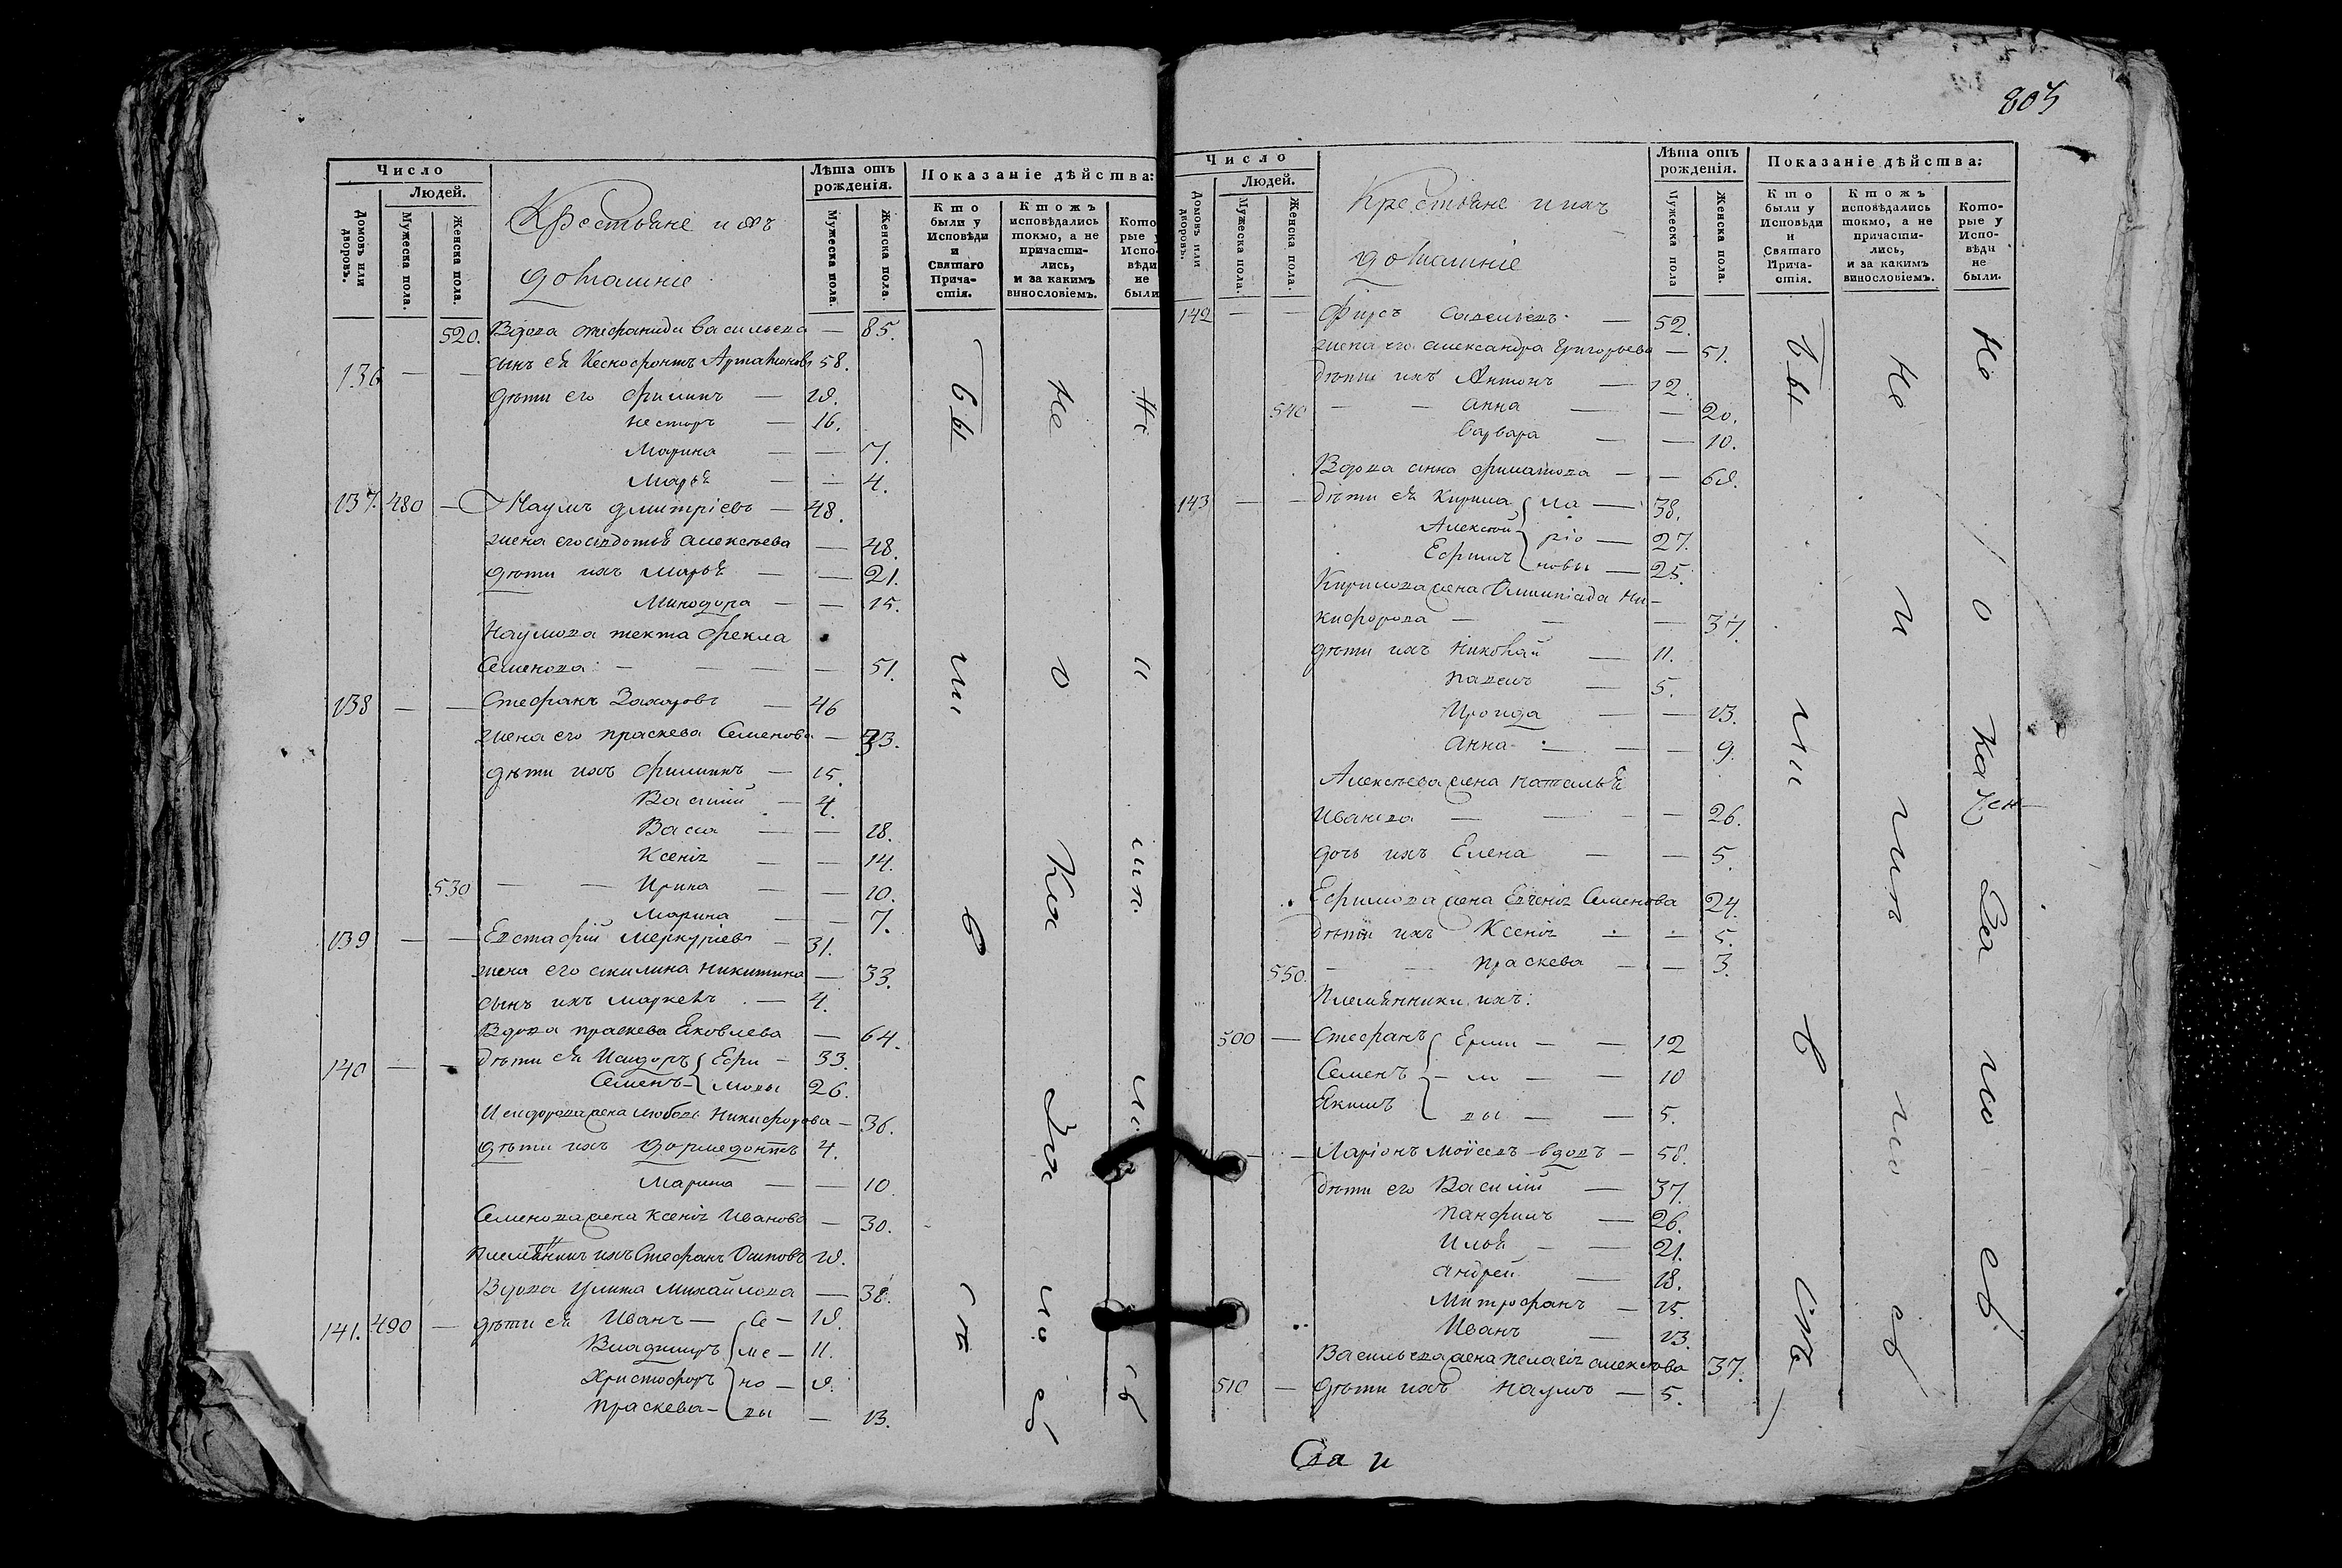 Число
Людей.
Домовъ или дворовъ.
Мужеска пола.
Женска пола.
Крестьяне и ихъ
домашніе
Лѣта отъ рожденія.
Мужеска пола.
Женска пола.
Показаніе дѣйства:
Кто были у Исповѣди и Святаго Причастія.
Ктожъ исповѣдались токмо, а не причастились, и за какимъ винословіемъ.
Кото
рые у
Испо
вѣди
не
были
520. Вдова Стефанида Васильева — 85.
136 — — сынъ ея Ксенофонтъ Артамоновъ 58.
дѣти его Филипъ — 19.
Несторъ — 16.
Марина — — 7.
Марья — — 4.
137. 480 — Наумъ Дмитріевъ — 48.
жена его Авдотья Алексѣева — 48.
дѣти ихъ Марья — — 21.
Минодора — — 15.
Наумова тетка Фекла
Семенова: — — — — 51.
138 — — Стефанъ Захаровъ — 46
жена его Праскева Семенова — 33.
дѣти ихъ Филипъ — 15.
Василій — 4.
Васса — — 18.
Ксенія — — 14.
530 — — Ирина — — 10.
Марина — — 7.
139 — — Евстафій Меркуріевъ — 31.
жена его Акилина Никитина — 33.
сынъ ихъ Маркелъ — 4.
Вдова Праскева Яковлева — 64.
140 — — дѣти ея Исидоръ Ефи — 33.
Семенъ — мовы 26.
Исидорова жена Любовь Никифорова — 36.
дѣти ихъ Дормедонтъ 4.
Марина — — 10.
Семенова жена Ксенія Иванова — 30.
племянникъ ихъ Стефанъ Осиповъ 19.
Вдова Улита Михайлова — 38.
141. 490 — дѣти ея Иванъ — Се — 19.
Владимиръ ме — 11.
Христофоръ но — 9.
Праскева — вы — 13.
бы
ли
в
сѣ
Не
о
Ка
За
но
сб
805
Число
Людей.
Домовъ или дворовъ.
Мужеска пола.
Женска пола.
Крестьяне и ихъ
домашніе
Лѣта отъ рожденія.
Мужеска пола
Женска пола.
Показаніе дѣйства:
Кто были у Исповѣди и Святаго Причастія.
Ктожъ исповѣдались токмо, а не причастились, и за какимъ винословіемъ.
Которые у Исповѣди не были.
142 — — Фирсъ Савельевъ — 52.
жена его Александра Григорьева — 51.
дѣти ихъ Антонъ — 12.
540 — — Анна — — 20.
Варвара — — 10.
Вдова Анна Филатова — — 69.
143 — — дѣти ея Кирила ла — 38.
Алексѣй ріо — 27.
Ефимъ новы — 25.
Кирилова жена Олимпіада Ни-
кифорова — — — 37.
дѣти ихъ Николай — 11.
Павелъ — 5.
Ироида — — 13.
Анна — — — 9.
Алексѣева жена Наталья
Иванова — — — — 26.
дочь ихъ Елена — — 5.
Ефимова жена Евгенія Семенова 24.
дѣти ихъ Ксенія — — 5.
550. — — Праскева — — 3.
Племянники ихъ:
500 — Стефанъ Ерми — — 12
Семенъ — — — 10
Якимъ вы — — 5.
— — Ларіонъ Моѵсеевъ вдовъ — 58.
дѣти его Василій — 37.
Панфилъ — 26.
Илья — — 21.
Андрей — 18.
Митрофанъ — 15.
Иванъ — 13.
Васильева жена Пелагія Алексѣева 37.
510 — дѣти ихъ Наумъ — 5.
бы
ли
в
сѣ